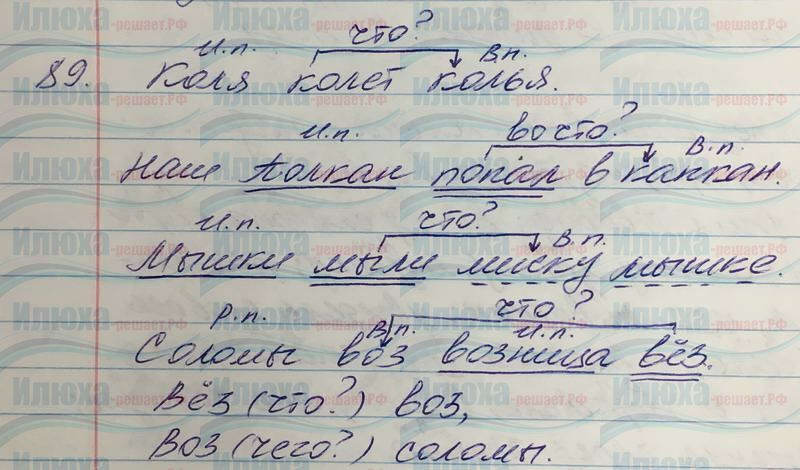 что?
И.п. В.п.
89. Коля колет колья.
И.п. во что? В.п.
Наш Полкан попал в капкан.
И.п. что? В.п.
Мышки мыли миску мышке.
Р.п. В.п. что? И.п.
Соломы воз возница вёз.
Вёз (что?) воз,
Воз (чего?) соломы.
Илюха-решает.РФ